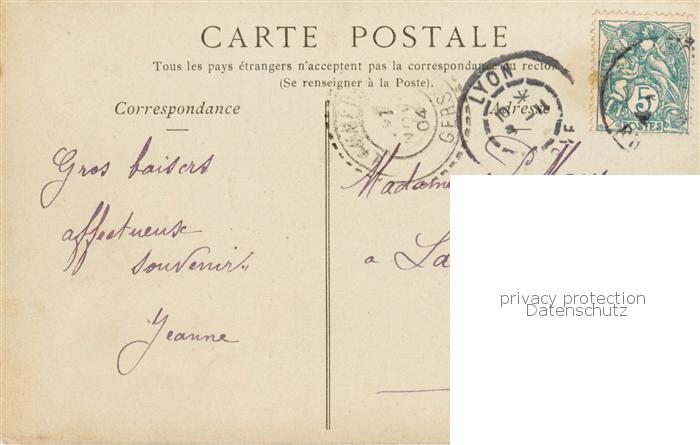 CARTE POSTALE
Tous les pays étrangers n'acceptent pas la correspondance au recto.
(Se renseigner à la Poste).
Correspondance
Adresse
LYON
GERS
04
5
POSTES
Gros baisers
affectueux
souvenirs
Jeanne
Madame
a La
privacy protection
Datenschutz